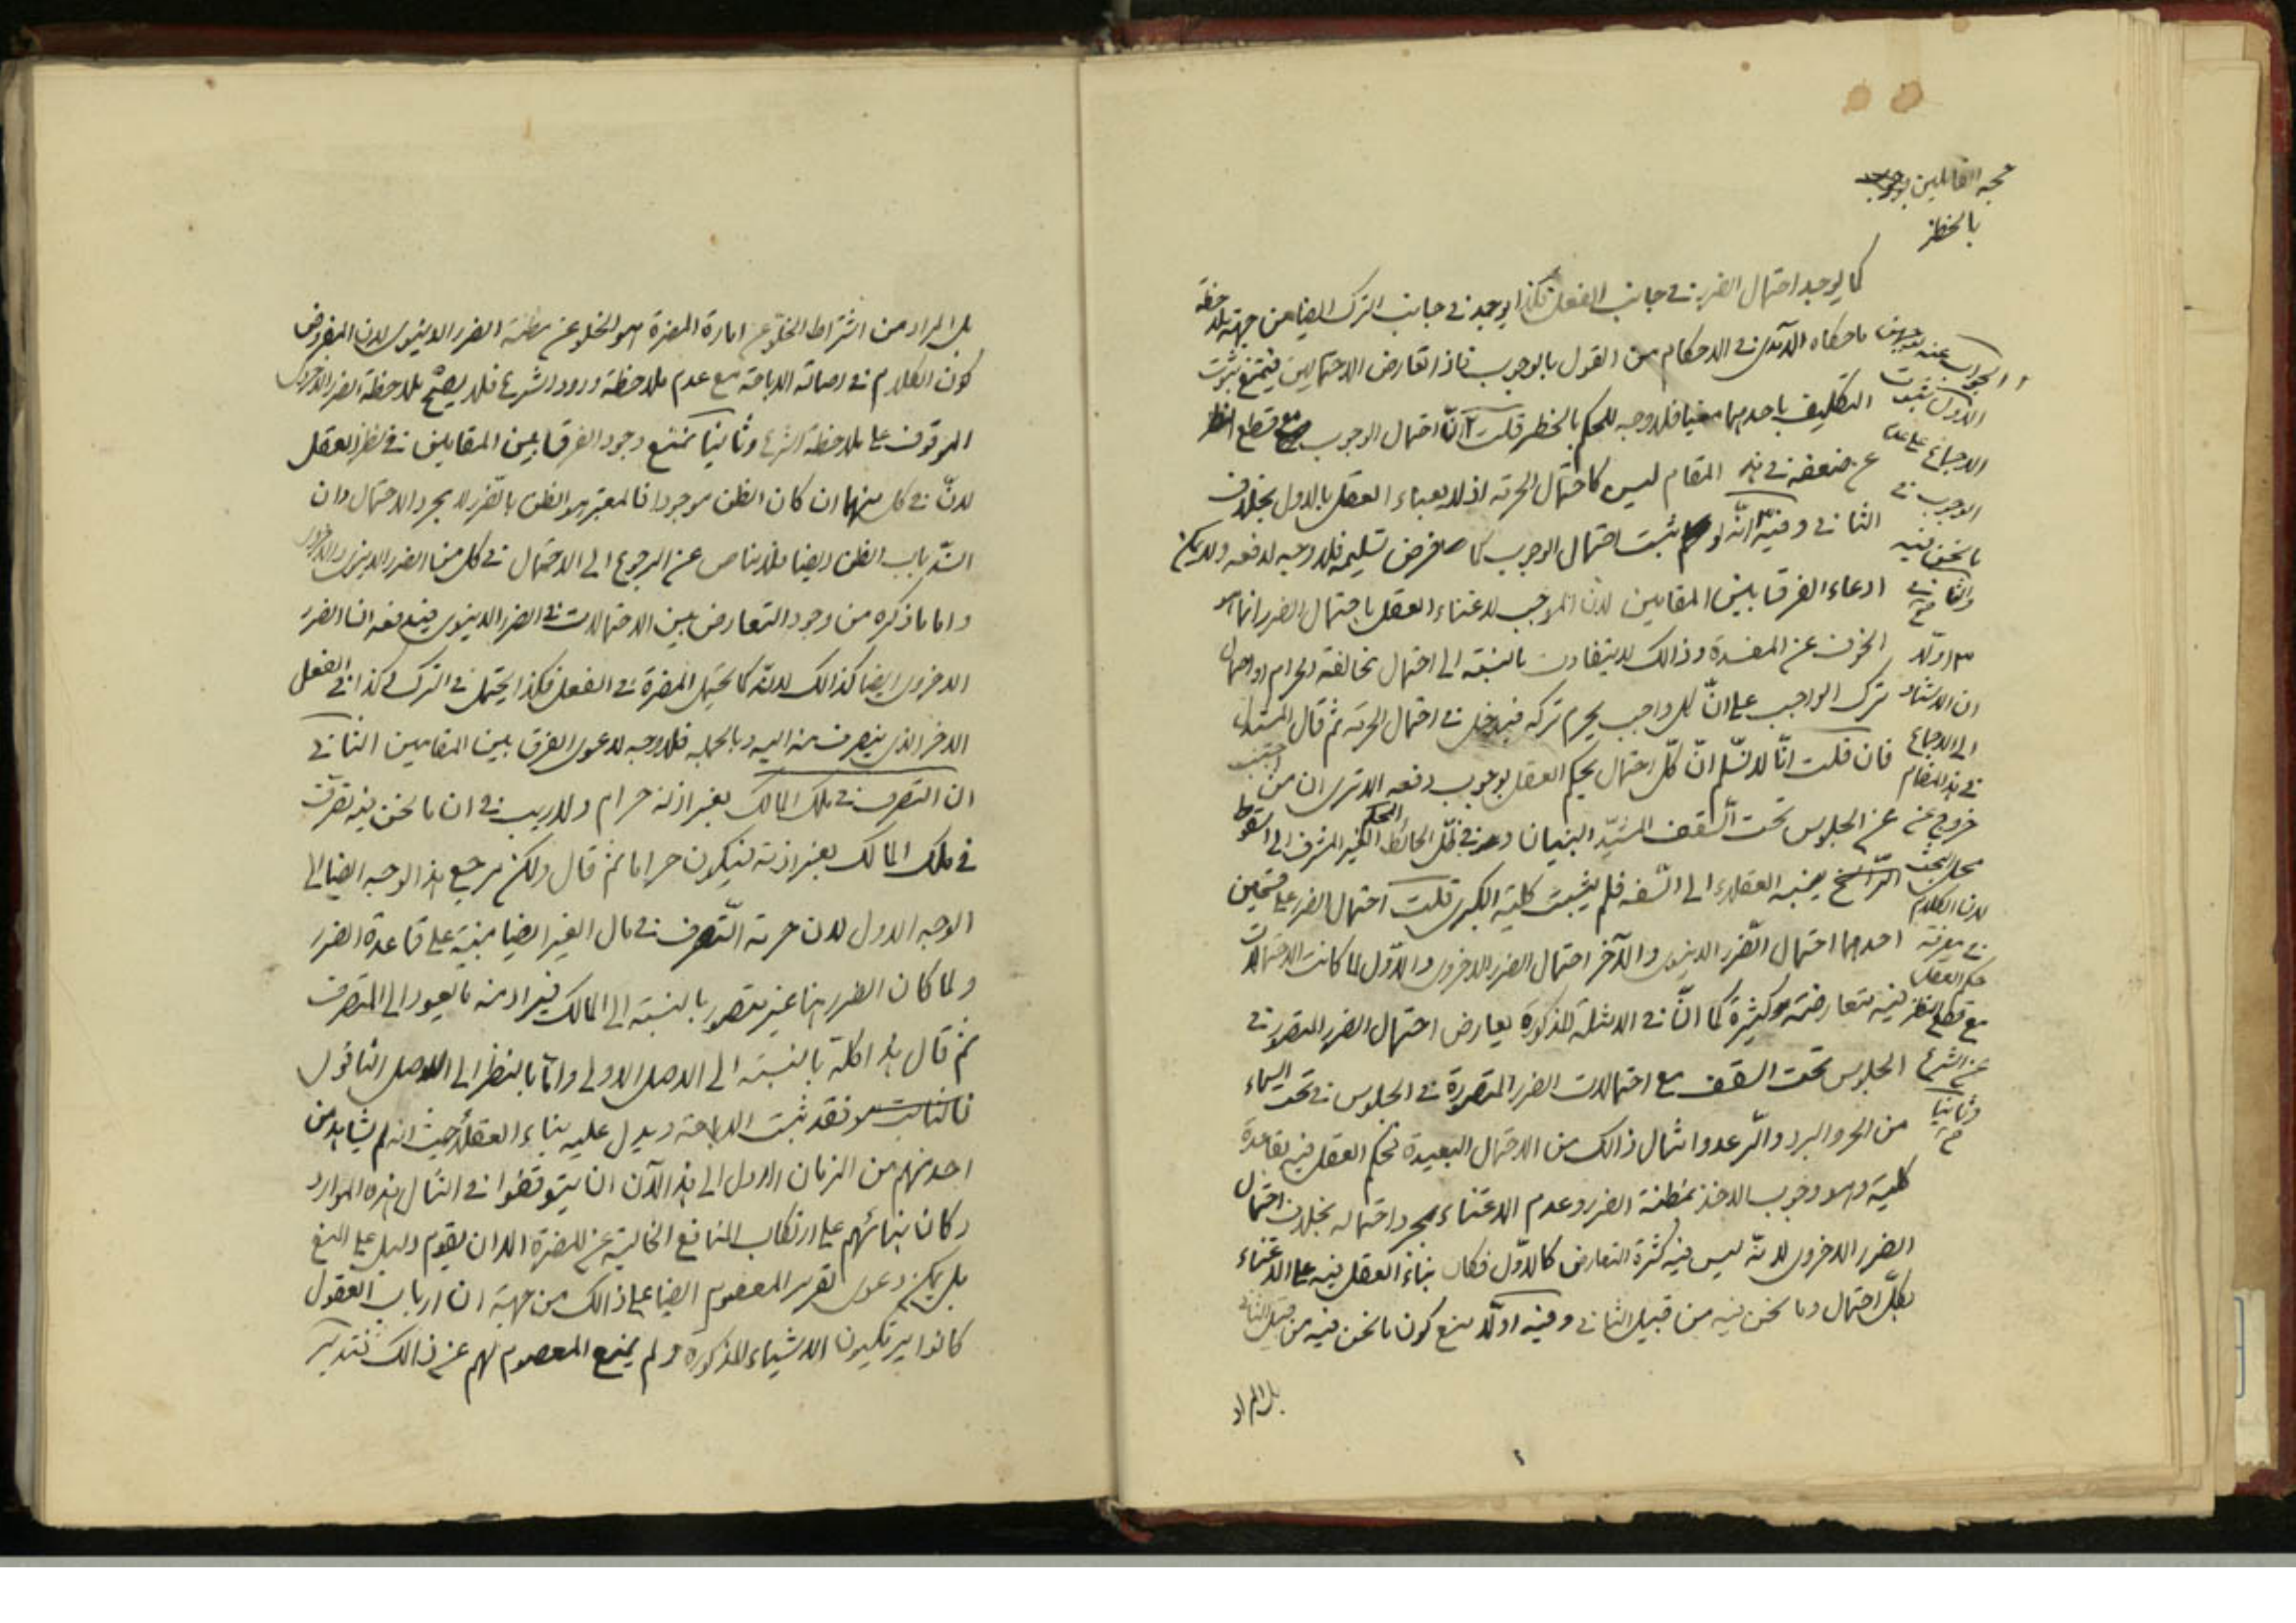 حجة القائلين بوجوب
بالحظر
كما يوجد احتمال الضرر في جانب الفعل فكذا يوجد في جانب الترك ايضا من جهة ملاحظة
ما حكاه الآمدي في الاحكام من القول بالوجوب فاذا تعارض الاحتمالين فيمتنع ثبوت
التكليف باحدهما معينا فلا وجه للحكم بالحظر قلت انّ احتمال الوجوب مع قطع النظر
عن ضعفه في هذه المقام ليس كاحتمال الحرمة اذ لا يعباء العقل بالاول بخلاف
الثاني وفيه انّه لو ثبت احتمال الوجوب كما هو فرض تسليمه فلا وجه لدفعه ولا يمكن
ادعاء الفرق بين المقامين لانّ الموجب لاعتناء العقل باحتمال الضرر انما هو
الخوف عن المفسدة وذالك لا يتفاوت بالنسبة الى احتمال مخالفة الحرام او احتمال
ترك الواجب على انّ كل واجب يحرم تركه فيدخل في احتمال الحرمة ثم قال المستدل
فان قلت انّا لا نسلّم انّ كلّ احتمال يحكم العقل بوجوب دفعه الا ترى ان من اجتنب
عن الجلوس تحت السّقف المشيّد البنيان وعن ظلّ الحائط المحكم الغير المشرف الى السقوط
الرّاسخ ينسبه العقلاء الى السّفه فلم يثبت كلية الكبرى قلت احتمال الضرر على قسمين
احدهما احتمال الضّرر الدنيوى والآخر احتمال الضرر الاخروى والاوّل لما كانت الاحتمالات
فيه متعارضة كثيرة كما انّ في الامثلة المذكورة يعارض احتمال الضرر المتصور في
الجلوس تحت السقف مع احتمالات الضرر المتصورة في الجلوس في تحت السماء
من الحر والبرد والرّعد وامثال ذالك من الاحتمال البعيدة فحكم العقل فيه بقاعدة
كلية وهو وجوب الاخذ بمظنة الضرر وعدم الاعتناء بمجرد احتماله بخلاف احتمال
الضرر الاخروى لانّه ليس فيه كثرة التعارض كالاوّل فكان بناء العقل فيه على الاعتناء
بكلّ احتمال وما نحن فيه من قبيل الثاني وفيه اوّلا منع كون ما نحن فيه من قبيل الثاني
بل المراد
والجواب عنه بوجهين
الاول ثبوت
الاجماع على عدم
الوجوب في
ما نحن فيه
والثاني
اوّلا
ان الاستناد
الى الاجماع
في هذا المقام
خروج عن
محل البحث
لان الكلام
في معرفة
حكم العقل
مع قطع النظر
عن الشرع
وثانيا
بل المراد من اشتراط الخلوّ عن امارة المضرة هو الخلو عن مظنة الضرر الدنيوى لان المفروض
كون الكلام في اصالة الاباحة مع عدم ملاحظة ورود الشرع فلا يصحّ ملاحظة الضرر الاخروى
الموقوف على ملاحظة الشرع وثانيا نمنع وجود الفرق بين المقامين في نظر العقل
لانّ في كل منهما ان كان الظن موجودا فالمعتبر هو الظن بالضّرر لا بمجرد الاحتمال وان
انسدّ باب الظن ايضا فلا مناص عن الرجوع الى الاحتمال في كل من الضرر الدنيوى والاخروى
واما ما ذكره من وجود التعارض بين الاحتمالات في الضرر الدنيوى فيدفعه ان الضرر
الاخروى ايضا كذالك لانّه كما يحتمل المضرة في الفعل فكذا يحتمل في الترك كذا في الفعل
الاخر الذى ينصرف منه اليه وبالجملة فلا وجه لدعوى الفرق بين المقامين الثاني
ان التصرف في ملك المالك بغير اذنه حرام ولا ريب في ان ما نحن فيه تصرّف
في ملك المالك بغير اذنه فيكون حراما ثم قال ولكن مرجع هذا الوجه ايضا الى
الوجه الاول لان حرمة التّصرف في مال الغير ايضا مبنية على قاعدة الضرر
ولما كان الضرر هنا غير متصور بالنسبة الى المالك فيراد منه ما يعود الى المتصرف
ثم قال هذا كله بالنسبة الى الاصل الاولى وامّا بالنظر الى الاصل الثانوى
فالثابت هو فقد ثبت الاباحة ويدل عليه بناء العقلاء حيث انه لم يشاهد من
احد منهم من الزمان الاول الى هذا الآن ان يتوقفوا في امثال هذه الموارد
وكان بنائهم على ارتكاب المنافع الخالية عن المضرة الا ان يقوم دليل على المنع
بل يمكن دعوى تقرير المعصوم ايضا على ذالك من جهة ان ارباب العقول
كانوا يرتكبون الاشياء المذكورة ولم يمنع المعصوم لهم عن ذالك فتدبّر